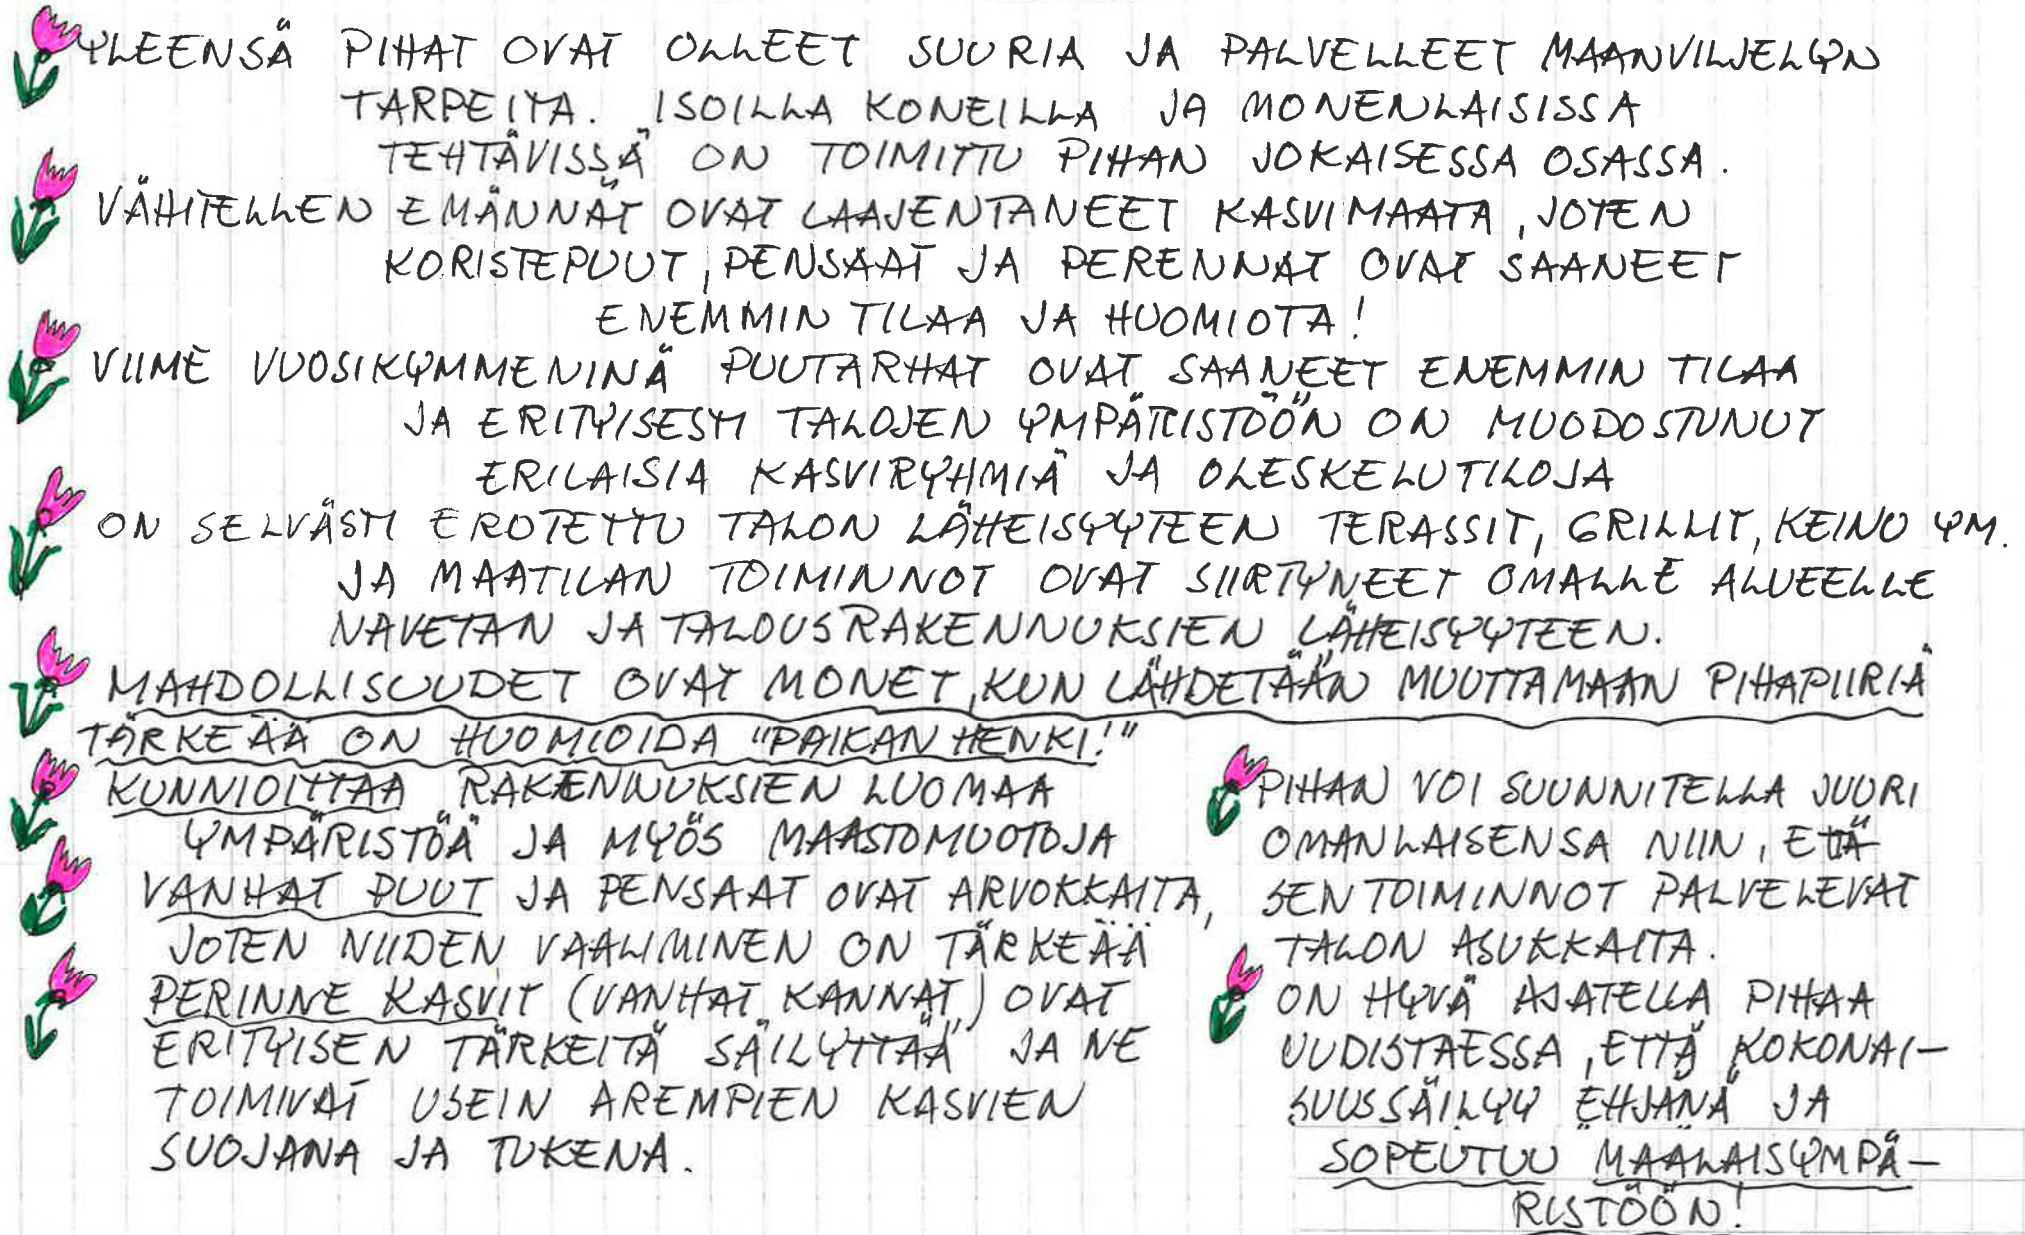 YLEENSÄ PIHAT OVAT OLLEET SUURIA JA PALVELLEET MAANVILJELYN
TARPEITA. ISOILLA KONEILLA JA MONENLAISISSA
TEHTÄVISSÄ ON TOIMITTU PIHAN JOKAISESSA OSASSA.
VÄHITELLEN EMÄNNÄT OVAT LAAJENTANEET KASVIMAATA, JOTEN
KORISTEPUUT, PENSAAT JA PERENNAT OVAT SAANEET
ENEMMIN TILAA JA HUOMIOTA!
VIIME VUOSIKYMMENINÄ PUUTARHAT OVAT SAANEET ENEMMIN TILAA
JA ERITYISESTI TALOJEN YMPÄRISTÖÖN ON MUODOSTUNUT
ERILAISIA KASVIRYHMIÄ JA OLESKELUTILOJA
ON SELVÄSTI EROTETTU TALON LÄHEISYYTEEN TERASSIT, GRILLIT, KEINO YM.
JA MAATILAN TOIMINNOT OVAT SIIRTYNEET OMALLE ALUEELLE
NAVETAN JA TALOUSRAKENNUKSIEN LÄHEISYYTEEN.
MAHDOLLISUUDET OVAT MONET, KUN LÄHDETÄÄN MUUTTAMAAN PIHAPIIRIÄ
TÄRKEÄÄ ON HUOMIOIDA "PAIKAN HENKI!"
KUNNIOITTAA RAKENNUKSIEN LUOMAA
YMPÄRISTÖÄ JA MYÖS MAASTOMUOTOJA
VANHAT PUUT JA PENSAAT OVAT ARVOKKAITA,
JOTEN NIIDEN VAALIMINEN ON TÄRKEÄÄ
PERINNE KASVIT (VANHAT KANNAT) OVAT
ERITYISEN TÄRKEITÄ SÄILYTTÄÄ JA NE
TOIMIVAT USEIN AREMPIEN KASVIEN
SUOJANA JA TUKENA.
PIHAN VOI SUUNNITELLA JUURI
OMANLAISENSA NIIN, ETTÄ
SEN TOIMINNOT PALVELEVAT
TALON ASUKKAITA.
ON HYVÄ AJATELLA PIHAA
UUDISTAESSA, ETTÄ KOKONAI-
SUUS SÄILYY EHJÄNÄ JA
SOPEUTUU MAALAISYMPÄ-
RISTÖÖN!